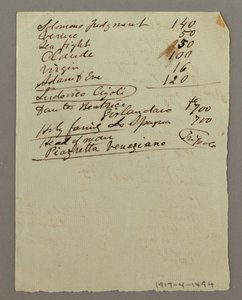 Solomons Judgment 140
Venus 50
Sea fight 50
Claude 100
Virgin 16
Adam & Eve 120
Ludovico Cigoli
Dante Beatrice
Girlandaio 700
Holy family Lo Spagna 700
Head of man
Piazetta Veneziano
1917-4-1494